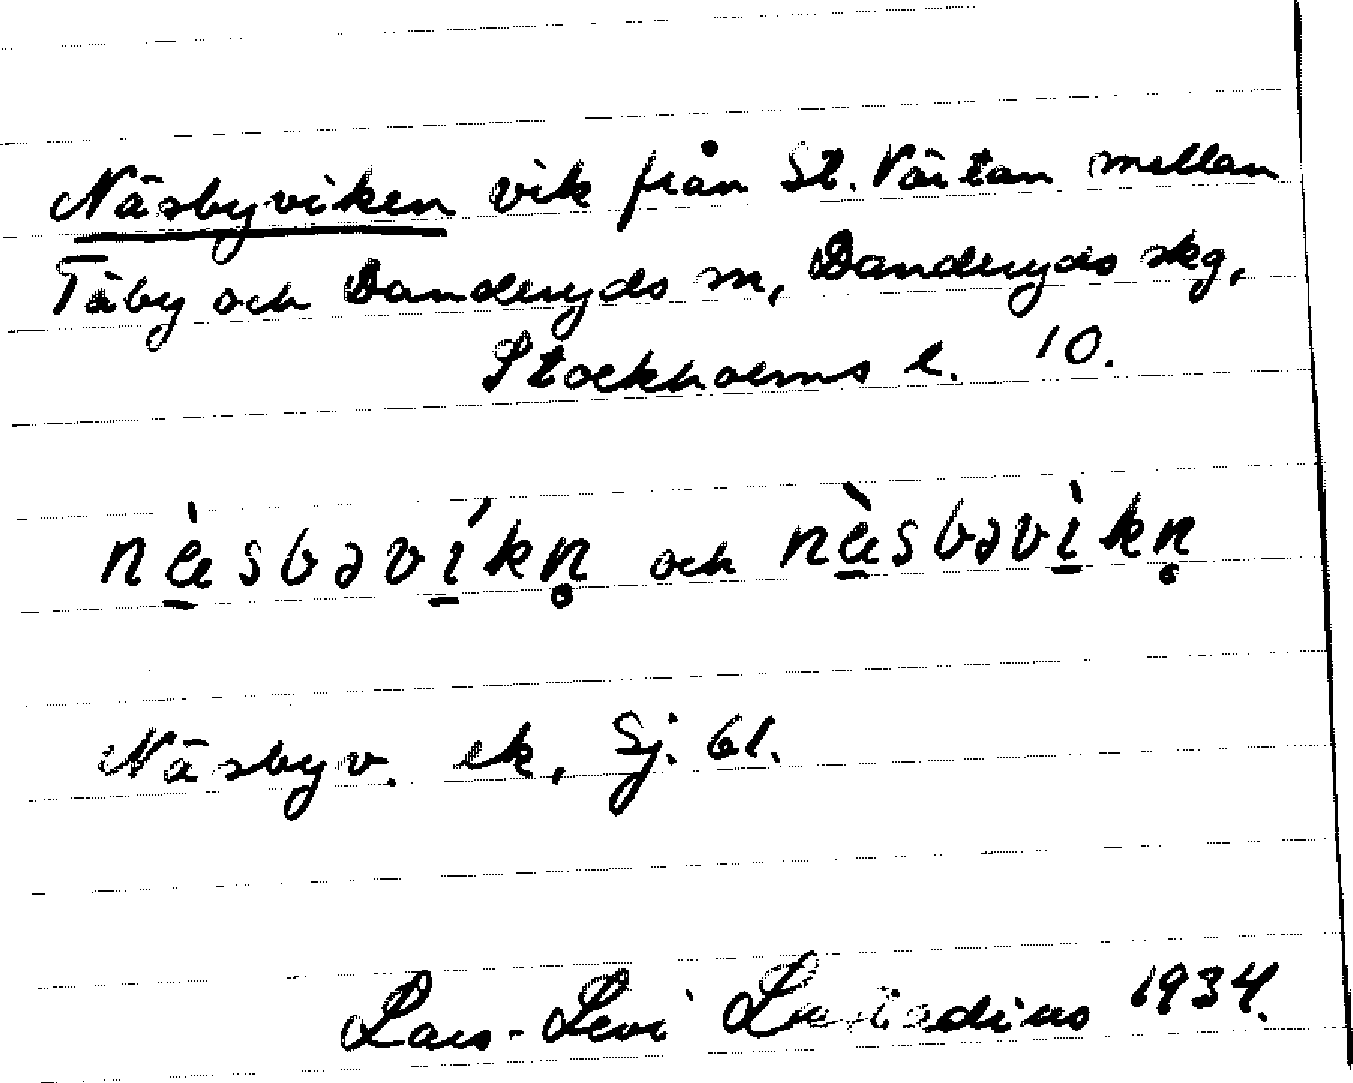 Näsbyviken vik från St. Värtan mellan
Täby och Danderyds sn, Danderyds skg,
Stockholms l. 10.
næ̀sbəvíkn̥ och næ̀sbəvìkn̥
Näsbyv. ek, Sj. bl.
Lars-Levi Læstadius 1934.